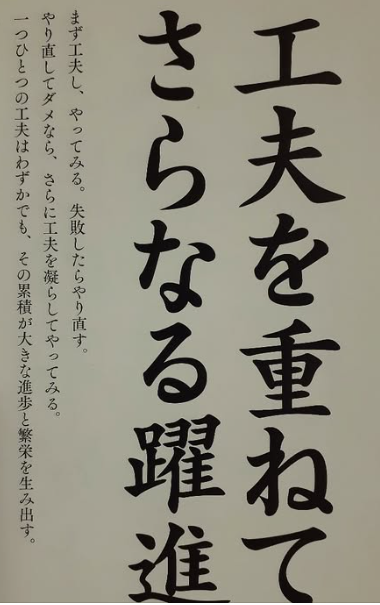 工夫を重ねて
さらなる躍進
まず工夫し、やってみる。失敗したらやり直す。
やり直してダメなら、さらに工夫を凝らしてやってみる。
一つひとつの工夫はわずかでも、その累積が大きな進歩と繁栄を生み出す。